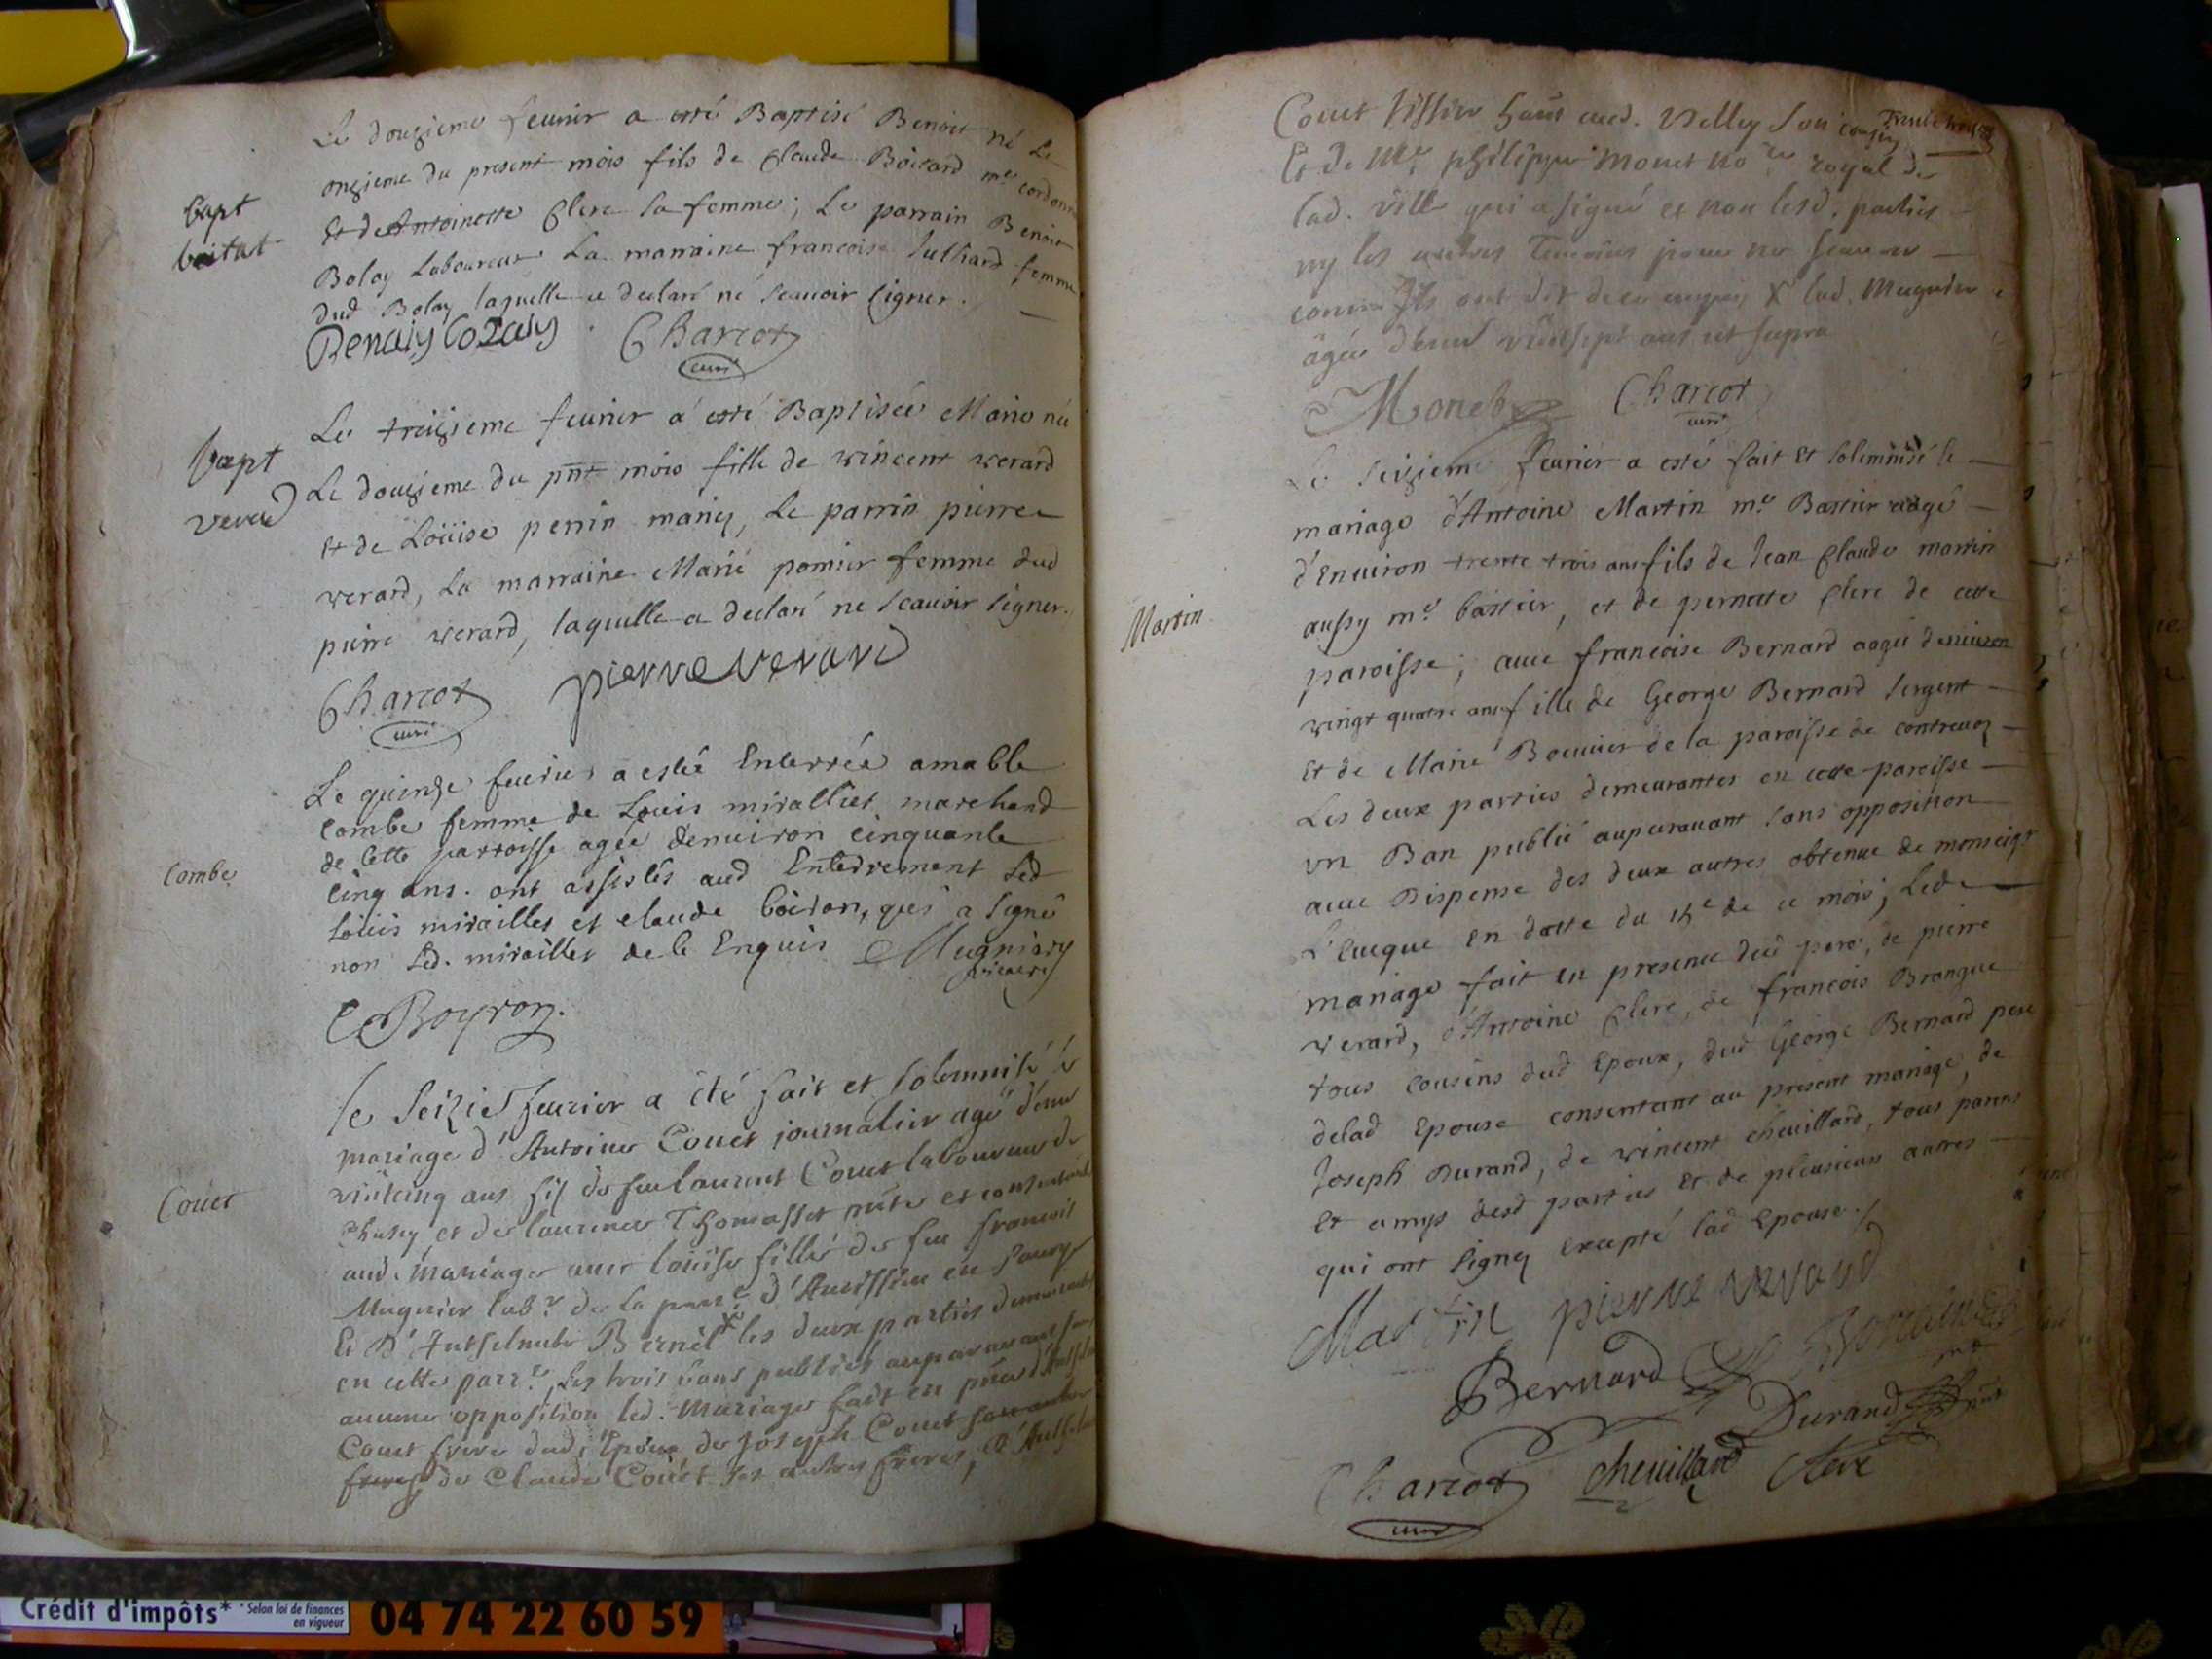 Le douzieme feurier a esté Baptisé Benoit né Le
onzieme du present mois fils de Claude Boitard me cordonn
bapt
Et de Antoinette Clerc sa femme; Le parrain Benoit
boitat
Bolay Laboureur La marraine francoise Julliard femme
dud Bolay laquelle a declaré né scauoir signer.
Charcot
curé
Le treizieme feurier a esté Baptisée Marie née
bapt
Le douzieme du pnt mois fille de vincent verard
verard
Et de Loüise perrin mariez, Le parrin pierre
verard, La marraine Marie pomier femme dud
pierre verard, laquelle a declaré ne scauoir signer.
Charcot pierre verard
curé
Le quinze feurier a estée Enterrée amable
Combe femme de Louis miralliet marchand
de Cette parroisse agée denuiron cinquante
Combe
Cinq ans. ont assistés aud Enterrement Led
Loüis mirailles et claude boiron, qui a signé
non Led. miraillet de ce Enquis Mugniery
vicaire
C Boyron.
le Seizie feurier a été fait et solemnisé le
mariage d'Antoine Couet journalier agé d'enu
vintcinq ans fils de feu laurent Couet laboureur de
Couet
et de laurence Thomasset mère et consentante
aud. mariage auec loüise fille de feu francois
Mugnier labr de la parr d'Anissieu en
Et D'Anthelmette Bernet X les deux parties demeurantes
en cette parr. Les trois bans publiés auparauant sans
aucune opposition led. Mariage fait en pnce d'Anthel
Couet frere dud. Epoux de Joseph Couet son autre
frere de Claude Couet ses autres freres, D'Anthel
Couet tissier aud. Velley son cousin
Et de Me philippe Monet nore royal de
lad. ville qui a signé et non lesd. parties
ny les autres Temoins pour ne scauoir
comme Ils ont dit de ce enquis X lad. Mugnier
agée d'enu vintsept ans ut supra
Monet Charcot
curé
Le seizieme feurier a esté fait Et solemnisé le
mariage d'Antoine Martin me Bastier aagé
d'Enuiron trente trois ans fils de Jean Claude martin
Martin
aussy me bastier, et de pernette Clerc de cette
paroisse; auec francoise Bernard aagée denuiron
vingt quatre ans fille de George Bernard sergent
Et de Marie Bouuier de la paroisse de contreuoz
Les deux parties demeurantes en cette paroisse
vn Ban publié auparauant sans opposition
auec Dispense des deux autres obtenue de monseigr
L'Eueque en datte du 15e de ce mois; Led
mariage fait en presence dud pere, de pierre
verard, d'Antoine Clerc, de francois Brangue
tous cousins dud Epoux, dud George Bernard pere
delad Epouse consentant au present mariage, de
Joseph Durand, de vincent cheuillard, tous parens
Et amys desd parties Et de plusieurs autres
qui ont signez excepté lad Epouse.
Martin pierre verard
Bernard
Durand
Charcot cheuillard Clerc
curé
Crédit d'impôts* *Selon loi de finances
en vigueur
04 74 22 60 59